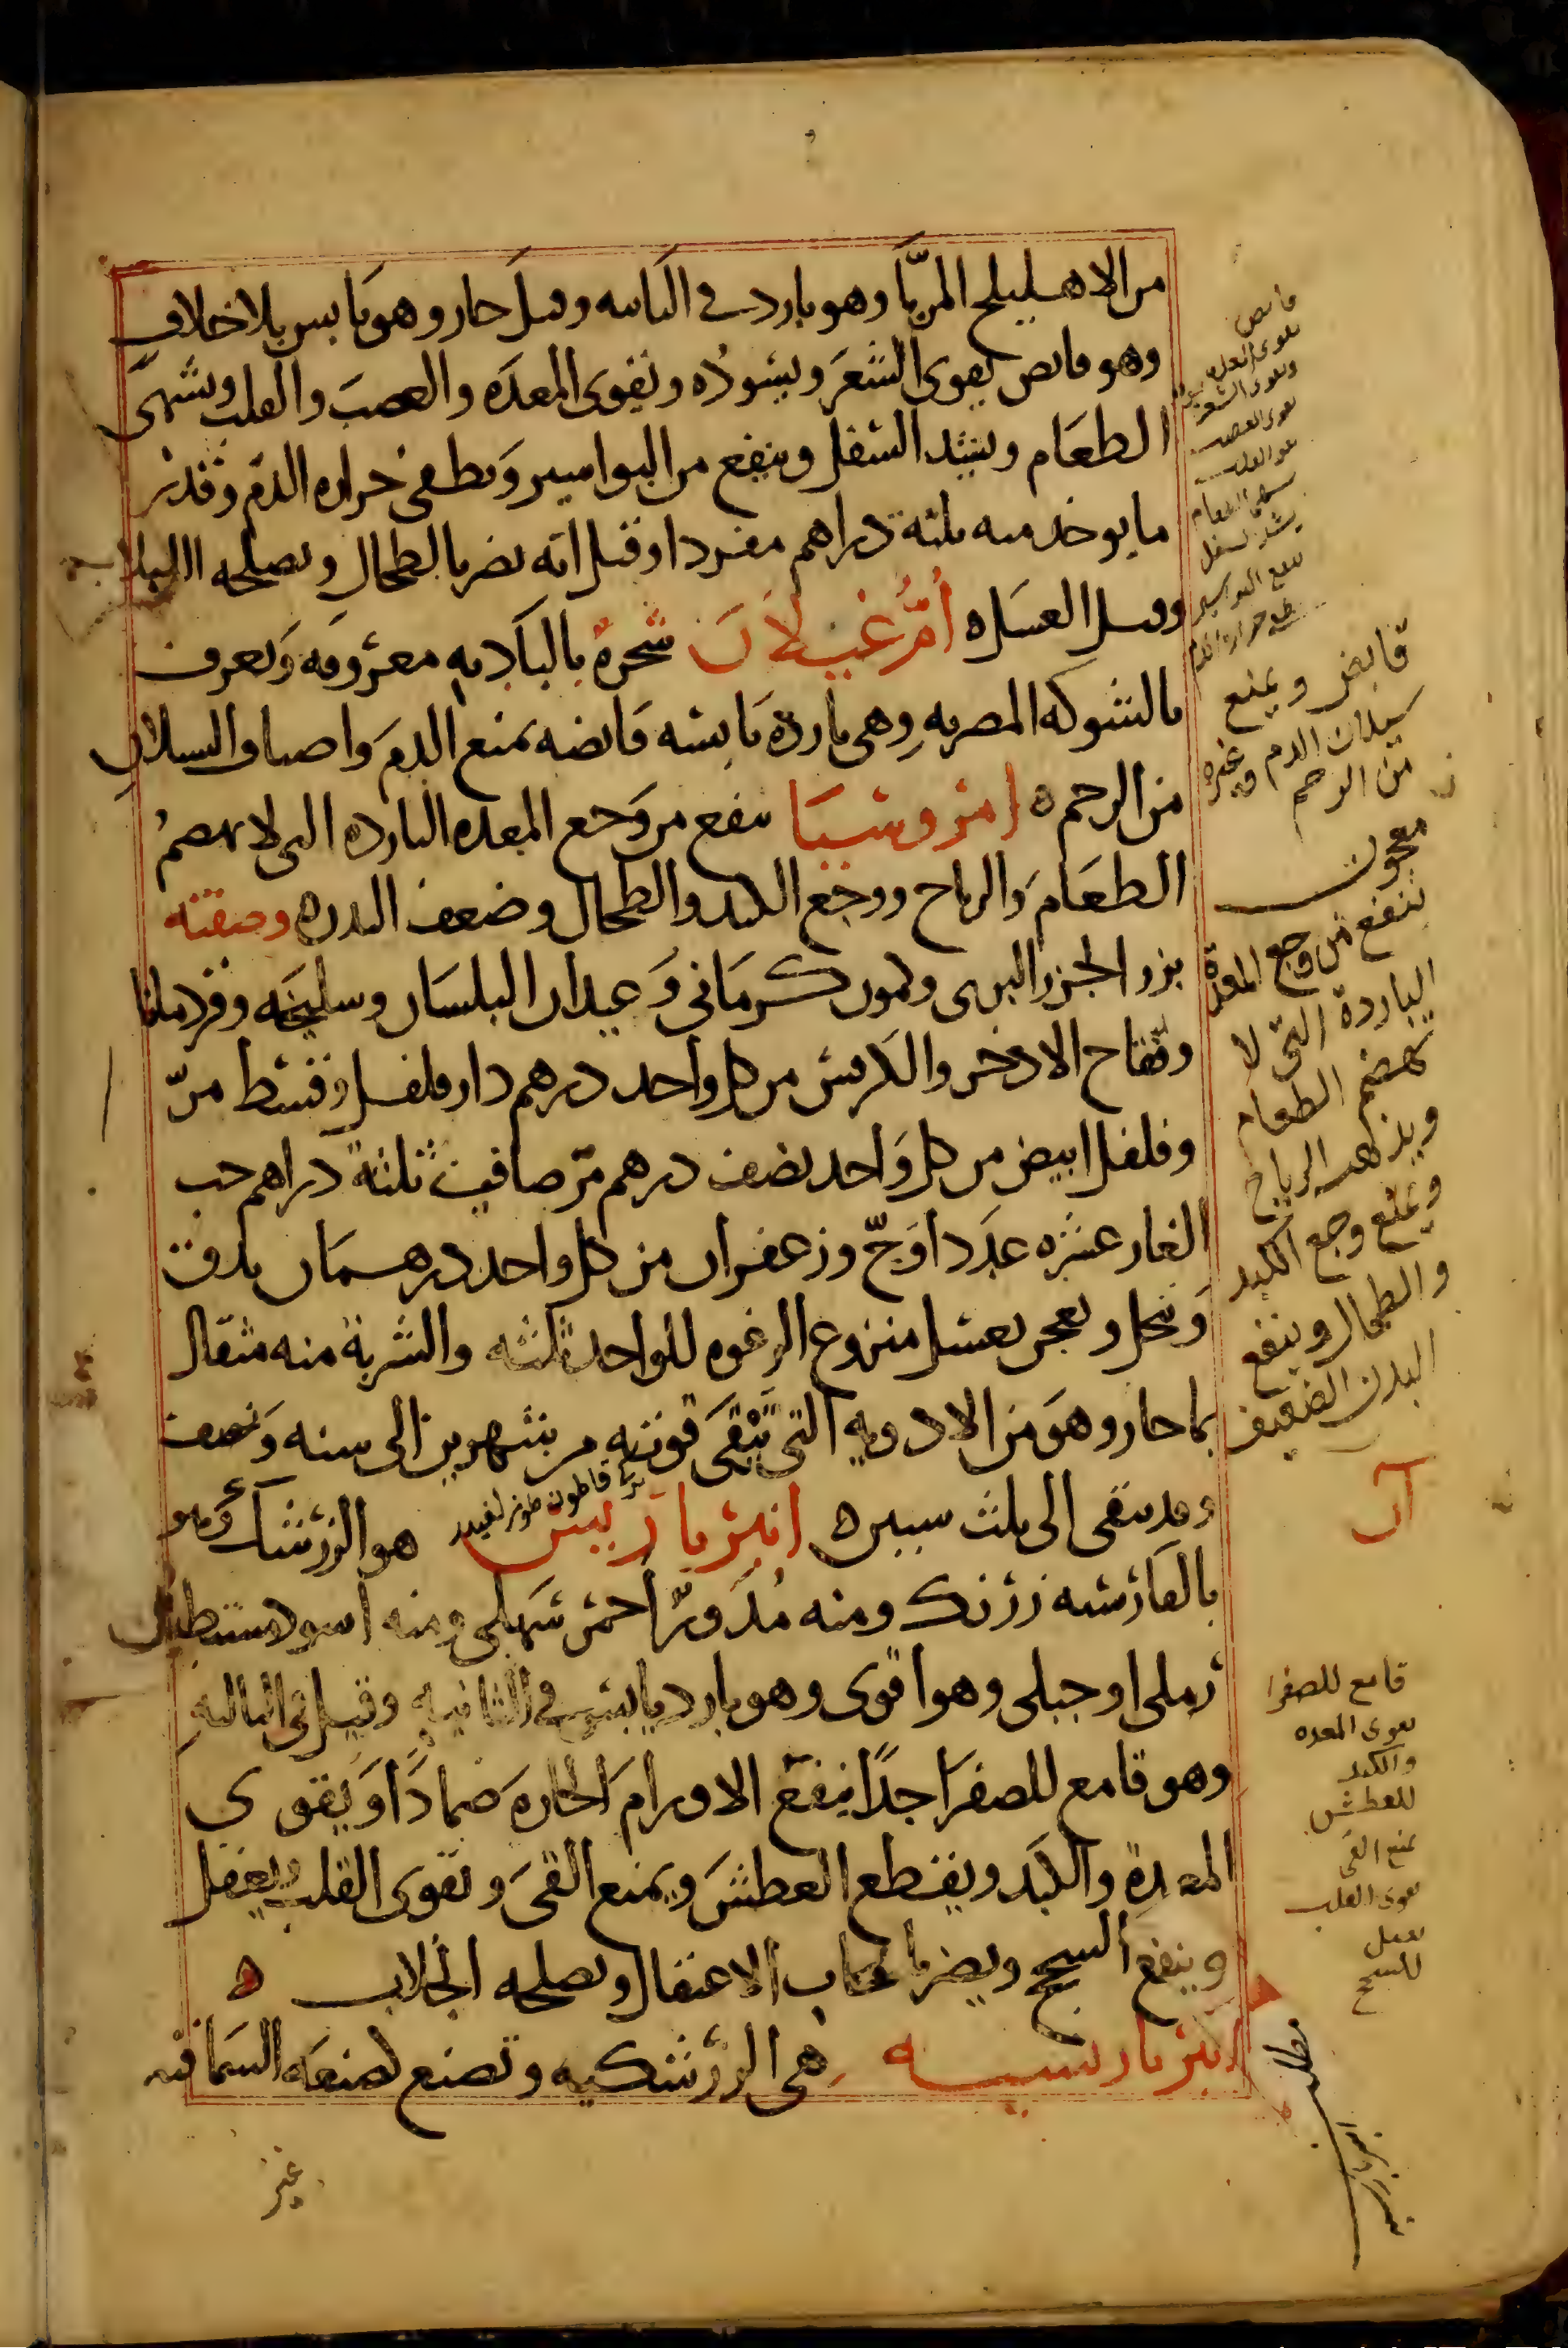 من الاهليلج المربّا وهو بارد في الثانيه وقيل حار وهو يابس بلا خلاف
وهو قابص يقوى الشعر ويسوده ويقوى المعده والعصب والقلب ويشهى
الطعام ويشد السفل وينفع من البواسير ويطفى حراره الدم وقدر
ما يوخد منه ثلثة دراهم مفردا وقيل انه يضر بالطحال ويصلحه
وقيل العسل ه أم غيلان شجرة بالباديه معروفه وتعرف
بالشوكه المصريه وهى بارده يابسه قابضه تمنع الدم واصناف السيلان
من الرحم ه امروسيا ينفع من وجع المعده البارده التى لا تهضم
الطعام والرياح ووجع الكبد والطحال وضعف البدن ه وصفته
بزر الجزر البرى وكمون كرمانى وعيدان البلسان وسليخه وقردمانا
وفقاح الادخر والكرفس من كل واحد درهم دار فلفل وقسط مرّ
وفلفل ابيض من كل واحد نصف درهم مر صافى ثلثة دراهم حب
الغار عشره عددا وجّ وزعفران من كل واحد درهمان يدق
وينخل ويعجن بعسل منزوع الرغوه للواحد ثلثه والشربة منه مثقال
بماحار وهو من الادويه التى تبقى قوته من شهرين الى سنه ونصف
وقد تبقى الى ثلث سنين ه انبرباريس هو الزرشك وهو
بالفارسيه زرنك ومنه مدوّر احمر سهلى ومنه اسود مستطيل
رملى او جبلى وهو اقوى وهو بارد يابس في الثانيه وقيل فى الثالثه
وهو قامع للصفرا جدا ينفع الاورام الحاره ضمادا ويقوى
المعدة والكبد ويقطع العطش ويمنع القى ويقوى القلب ويعقل
وينفع السحج ويضر باصحاب الاعتقال ويصلحه الجلاب ه
انبرباريسيه هى الزرشكيه وتصنع لصنعه السماقيه
قابص
يقوى المعده
ويقوى الشعر
يقوى العصب
يشد السفل
قابض ويمنع
سيلان الدم وغيره
من الرحم
معجون
ينفع من وجع المعدة
الباردة التى لا
تهضم الطعام
ويذهب الرياح
ويمنع وجع الكبد
والطحال وينفع
البدن الضعيف
آن
قامع للصفرا
يقوى المعده
والكبد
للعطش
يمنع القى
يقوى القلب
يعقل
للسحج
مطلب